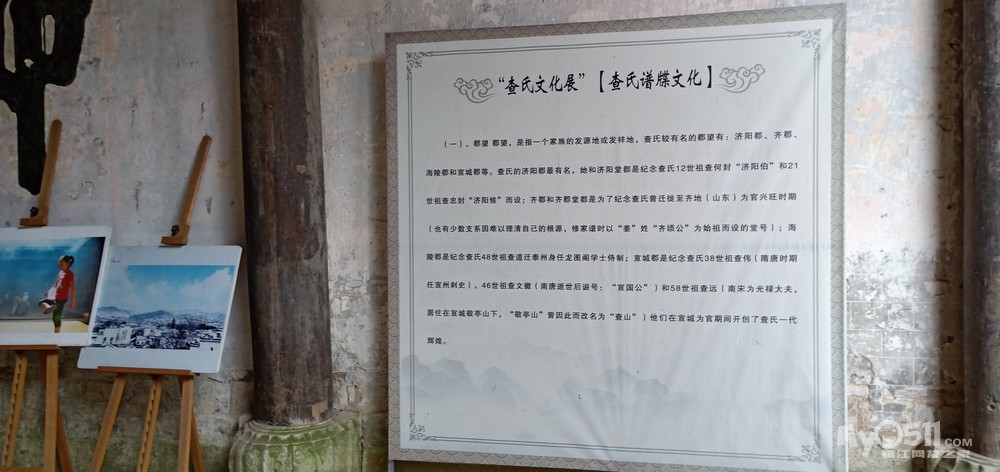 “查氏文化展”【查氏谱牒文化】
（一）、郡望 郡望，是指一个家族的发源地或发祥地，查氏较有名的郡望有：济阳郡、齐郡、
海陵郡和宣城郡等。查氏的济阳郡最有名，她和济阳堂都是纪念查氏12世祖查何封“济阳伯”和21
世祖查忠封“济阳候”而设；齐郡和齐郡堂都是为了纪念查氏曾迁徙至齐地（山东）为官兴旺时期
（也有少数支系因难以理清自己的根源，修家谱时以“姜”姓“齐顷公”为始祖而设的堂号）；海
陵郡是纪念查氏48世祖查道迁泰州身任龙图阁学士侍制；宣城郡是纪念查氏38世祖查伟（隋唐时期
任宣州刺史），46世祖文徽（南唐逝世后谥号：“宣国公”）和58世祖查远（南宋为光禄大夫，
居住在宣城敬亭山下，“敬亭山”曾因此而改名为“查山”）他们在宣城为官期间开创了查氏一代
辉煌。
my0511.COM
镇江网友之家